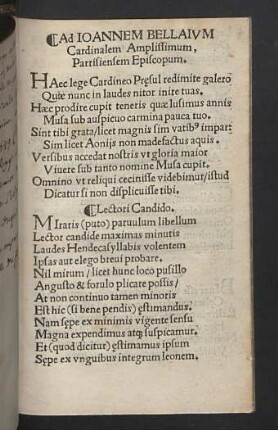 ¶Ad IOANNEM BELLAIVM
Cardinalem Amplissimum,
Parrisiensem Episcopum.
HAec lege Cardineo Pręsul redimite galero
Quæ nunc in laudes nitor inire tuas.
Hæc prodire cupit teneris quæ lusimus annis
Musa sub auspicuo carmina pauca tuo.
Sint tibi grata/licet magnis sim vatibꝰ impar:
Sim licet Aonijs non madefactus aquis.
Versibus accedat nostris vt gloria maior
Viuere sub tanto nomine Musa cupit.
Omnino vt reliqui cecinisse videbimur/istud
Dicatur si non displicuisse tibi.
¶Lectori Candido.
MIraris (puto) paruulum libellum
Lector candide maximas minutis
Laudes Hendecasyllabis volentem
Ipsas aut elego breui probare.
Nil mirum/licet hunc loco pusillo
Angusto & forulo plicare possis/
At non continuo tamen minoris
Est hic (si bene pendis) estimandus.
Nam sępe ex minimis vigente sensu
Magna expendimus atqȝ suspicamur.
Et (quod dicitur) estimamus ipsum
Sępe ex vnguibus integrum leonem.